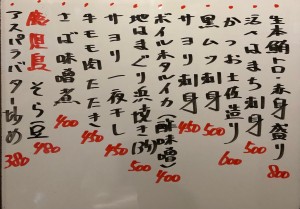 生本鮪トロ赤身盛り 800
活〆はまち刺身 500
かつお土佐造り 600
黒ムツ刺身 500
サヨリ刺身 450
ボイルホタルイカ(酢味噌) 400
地はまぐり浜焼き(3ケ) 500
サヨリ一夜干し 450
牛モモ肉たたき 450
さば味噌煮 400
鹿児島そら豆 480
アスパラバター炒め 380